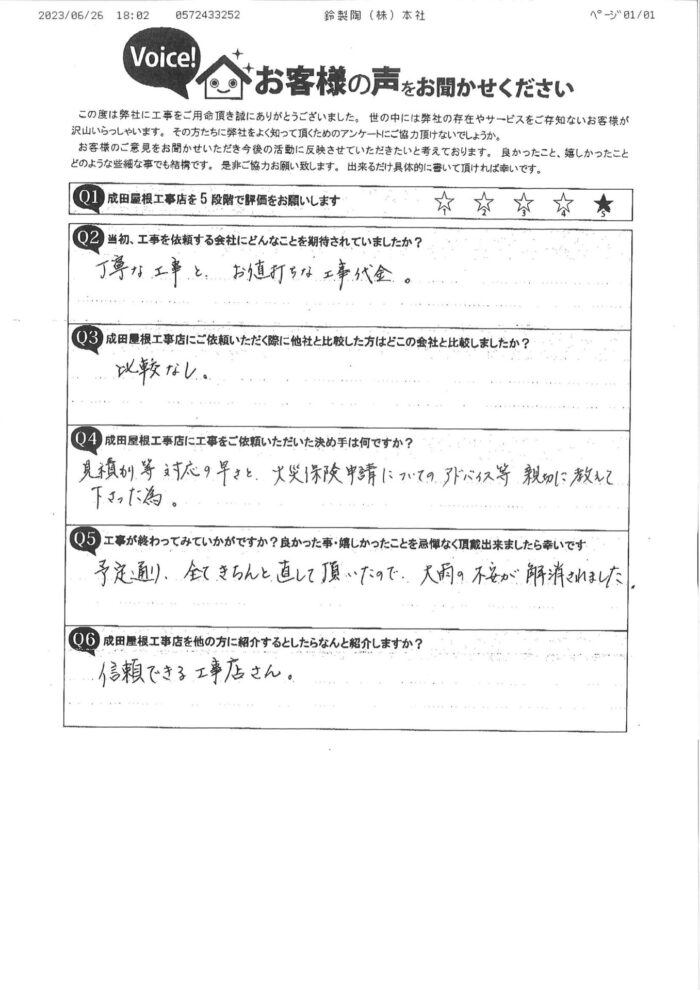 2023/06/26 18:02 0572433252 鈴製陶（株）本社 ﾍﾟｰｼﾞ01/01
Voice!
お客様の声をお聞かせください
この度は弊社に工事をご用命頂き誠にありがとうございました。 世の中には弊社の存在やサービスをご存知ないお客様が
沢山いらっしゃいます。 その方たちに弊社をよく知って頂くためのアンケートにご協力頂けないでしょうか。
お客様のご意見をお聞かせいただき今後の活動に反映させていただきたいと考えております。 良かったこと、嬉しかったこと
どのような些細な事でも結構です。 是非ご協力お願い致します。 出来るだけ具体的に書いて頂ければ幸いです。
Q1 成田屋根工事店を5段階で評価をお願いします ☆1 ☆2 ☆3 ☆4 ★5
Q2 当初、工事を依頼する会社にどんなことを期待されていましたか？
丁寧な工事と、お値打ちな工事代金。
Q3 成田屋根工事店にご依頼いただく際に他社と比較した方はどこの会社と比較しましたか？
比較なし。
Q4 成田屋根工事店に工事をご依頼いただいた決め手は何ですか？
見積り等対応の早さと、火災保険申請についてのアドバイス等親切に教えて
下さった為。
Q5 工事が終わってみていかがですか？良かった事・嬉しかったことを忌憚なく頂戴出来ましたら幸いです
予定通り、全てきちんと直して頂いたので、大雨の不安が解消されました。
Q6 成田屋根工事店を他の方に紹介するとしたらなんと紹介しますか？
信頼できる工事店さん。